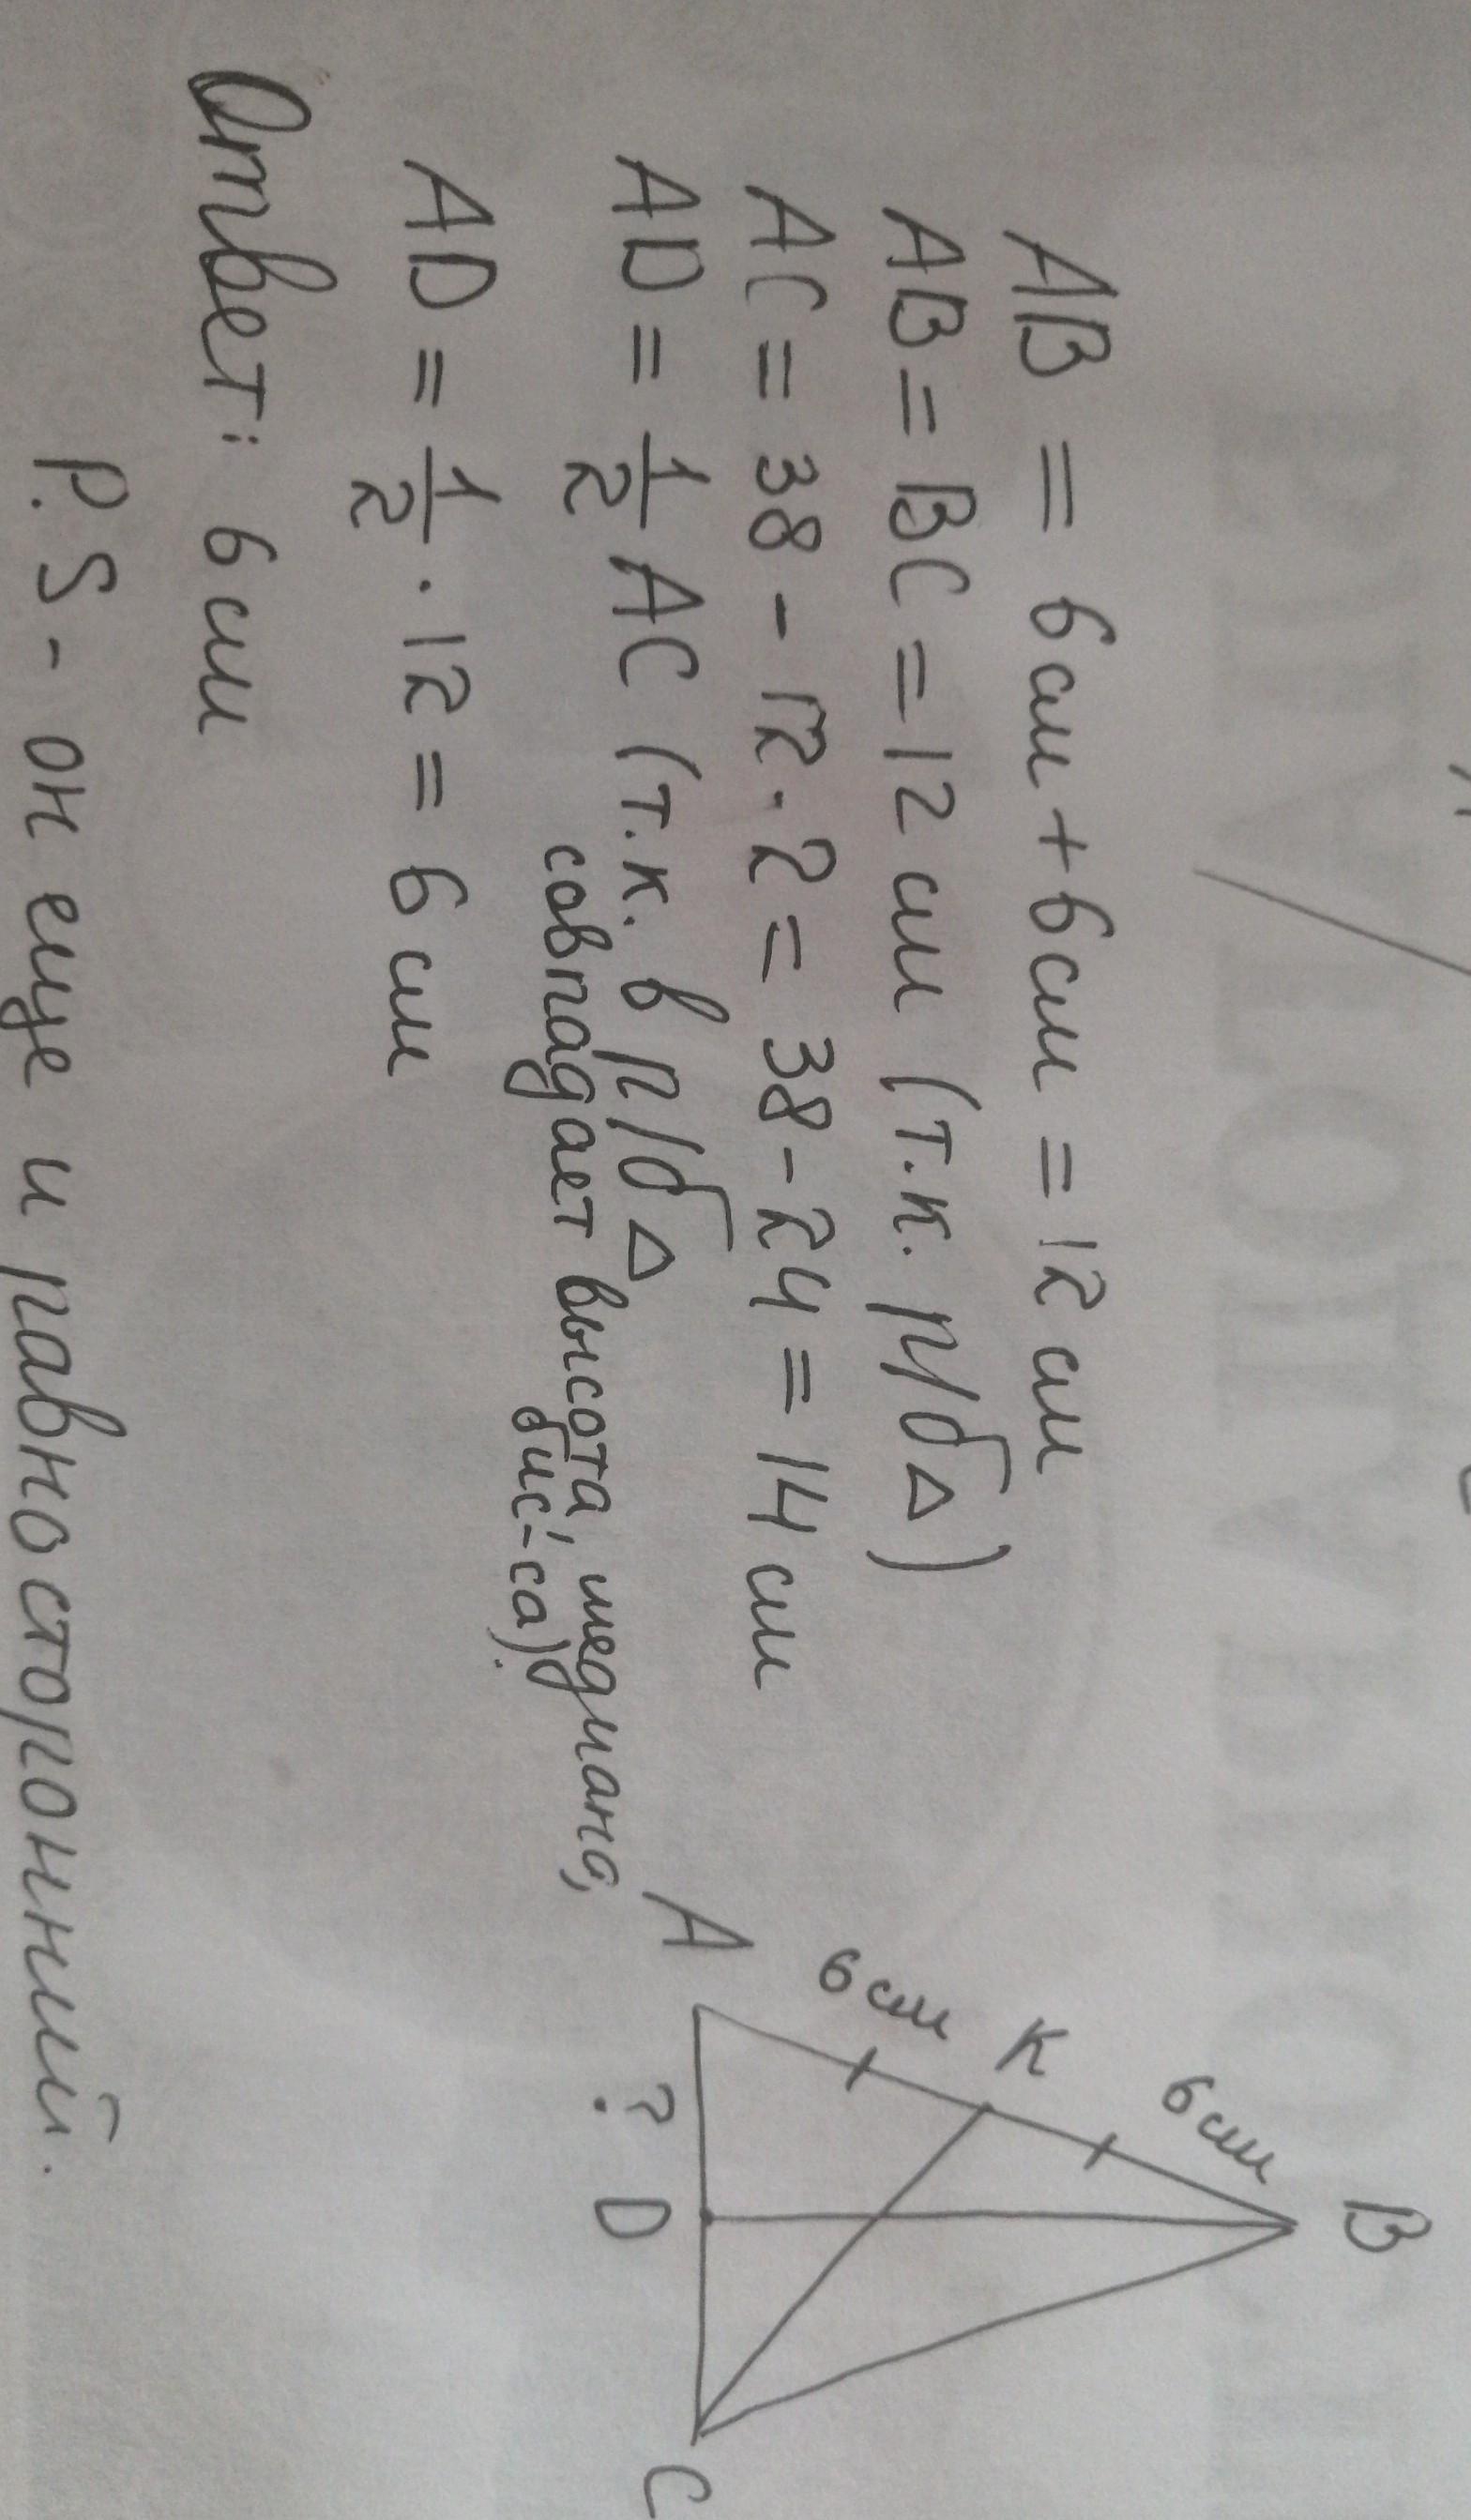 AB = 6 см + 6 см = 12 см
AB = BC = 12 см (т.к. р/б △)
AC = 38 - 12 · 2 = 38 - 24 = 14 см
AD = 1/2 AC (т.к. в р/б △
совпадает высота, медиана,
бис-са).
AD = 1/2 · 12 = 6 см
Ответ: 6 см
P.S - он еще и равносторонний.
B
6 см
K
6 см
A
?
D
C